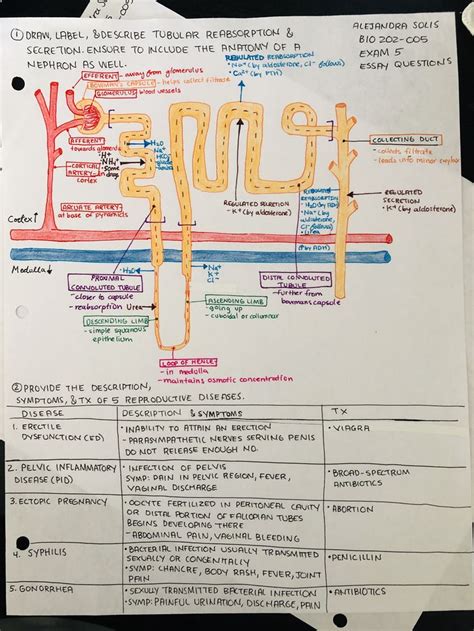 ① DRAW, LABEL, & DESCRIBE TUBULAR REABSORPTION &
SECRETION. ENSURE TO INCLUDE THE ANATOMY OF A
NEPHRON AS WELL.
ALEJANDRA SOLIS
BIO 202-005
EXAM 5
ESSAY QUESTIONS
REGULATED REABSORPTION
• Na+ (by aldosterone, Cl- follows)
• Ca2+ (by PTH)
EFFERENT - away from glomerulus
BOWMAN'S CAPSULE - helps collect filtrate
GLOMERULUS - blood vessels
AFFERENT
towards glomerulus
CORTICAL
ARTERY - at
cortex
ARCUATE ARTERY -
at base of pyramids
• H+
• NH4+
• Some
drugs
H2O
Na+
HCO3-
COLLECTING DUCT
- collects filtrate
- leads into minor calyx
REGULATED
SECRETION
• K+ (by aldosterone)
REGULATED SECRETION
• K+ (by aldosterone)
REGULATED
REABSORPTION
• H2O (by ADH)
• Na+ (by
aldosterone, Cl-
follows)
• Urea
(by ADH)
Cortex ↑
Medulla ↓
H2O
Na+
K+
Cl-
PROXIMAL
CONVOLUTED TUBULE
- closer to capsule
- reabsorption
Urea
DESCENDING LIMB
- simple squamous
epithelium
ASCENDING LIMB
- going up
- cuboidal or columnar
DISTAL CONVOLUTED
TUBULE
- further from
bowmans capsule
LOOP OF HENLE
- in medulla
- maintains osmotic concentration
② PROVIDE THE DESCRIPTION,
SYMPTOMS, & TX OF 5 REPRODUCTIVE DISEASES.
DISEASE
DESCRIPTION & SYMPTOMS
TX
1. ERECTILE
DYSFUNCTION (ED)
• INABILITY TO ATTAIN AN ERECTION
- PARASYMPATHETIC NERVES SERVING PENIS
DO NOT RELEASE ENOUGH NO.
• VIAGRA
2. PELVIC INFLAMMATORY
DISEASE (PID)
• INFECTION OF PELVIS
SYMP: PAIN IN PELVIC REGION, FEVER,
VAGINAL DISCHARGE
• BROAD-SPECTRUM
ANTIBIOTICS
3. ECTOPIC PREGNANCY
• OOCYTE FERTILIZED IN PERITONEAL CAVITY
OR DISTAL PORTION OF FALLOPIAN TUBES
BEGINS DEVELOPING THERE
- ABDOMINAL PAIN, VAGINAL BLEEDING
• ABORTION
4. SYPHILIS
• BACTERIAL INFECTION USUALLY TRANSMITTED
SEXUALLY OR CONGENITALLY
• SYMP: CHANCRE, BODY RASH, FEVER, JOINT
PAIN
• PENICILLIN
5. GONORRHEA
• SEXUALLY TRANSMITTED BACTERIAL INFECTION
• SYMP: PAINFUL URINATION, DISCHARGE, PAIN
• ANTIBIOTICS